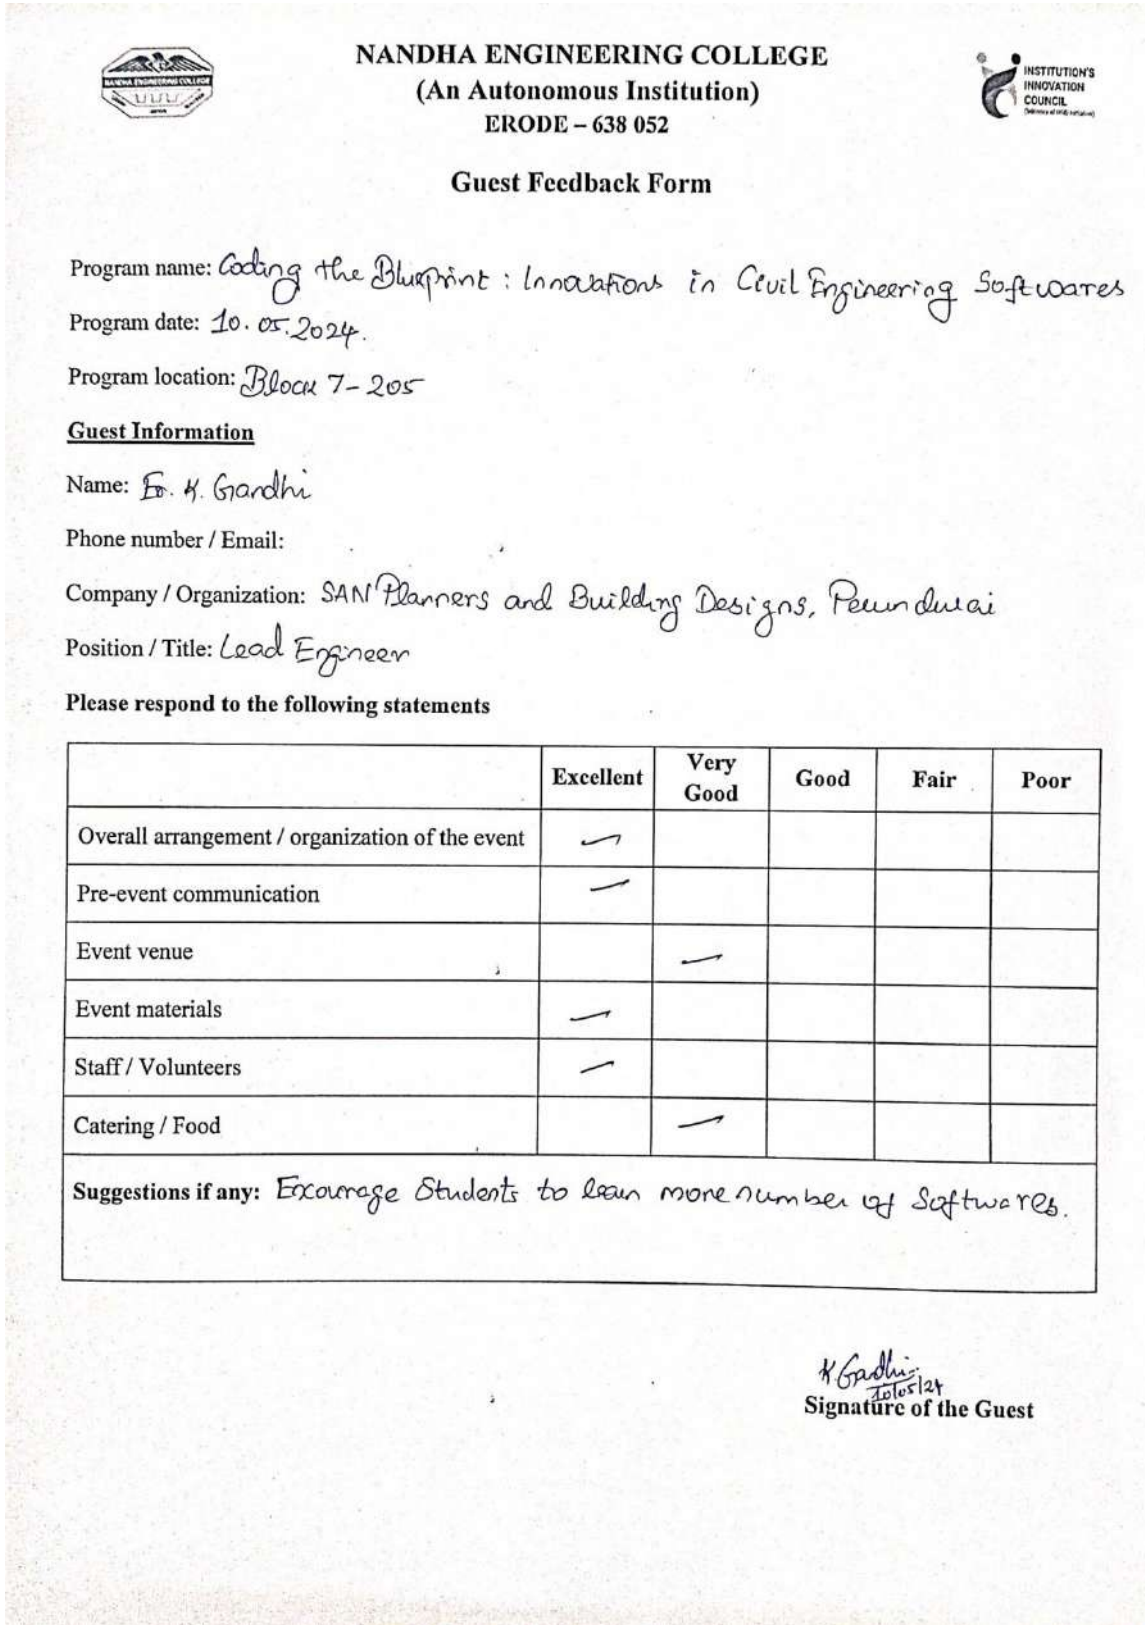 NANDHA ENGINEERING COLLEGE
(An Autonomous Institution)
ERODE – 638 052
NANDHA ENGINEERING COLLEGE
INSTITUTION'S
INNOVATION
COUNCIL
Guest Feedback Form
Program name: Coding the Blueprint : Innovations in Civil Engineering Softwares
Program date: 10.05.2024.
Program location: Block 7-205
Guest Information
Name: Er. K. Gandhi
Phone number / Email:
Company / Organization: SAN Planners and Building Designs, Perundurai
Position / Title: Lead Engineer
Please respond to the following statements
Excellent Very Good Good Fair Poor
Overall arrangement / organization of the event
Pre-event communication
Event venue
Event materials
Staff / Volunteers
Catering / Food
Suggestions if any: Encourage Students to learn more number of Softwares.
K Gadhi
10/05/24
Signature of the Guest